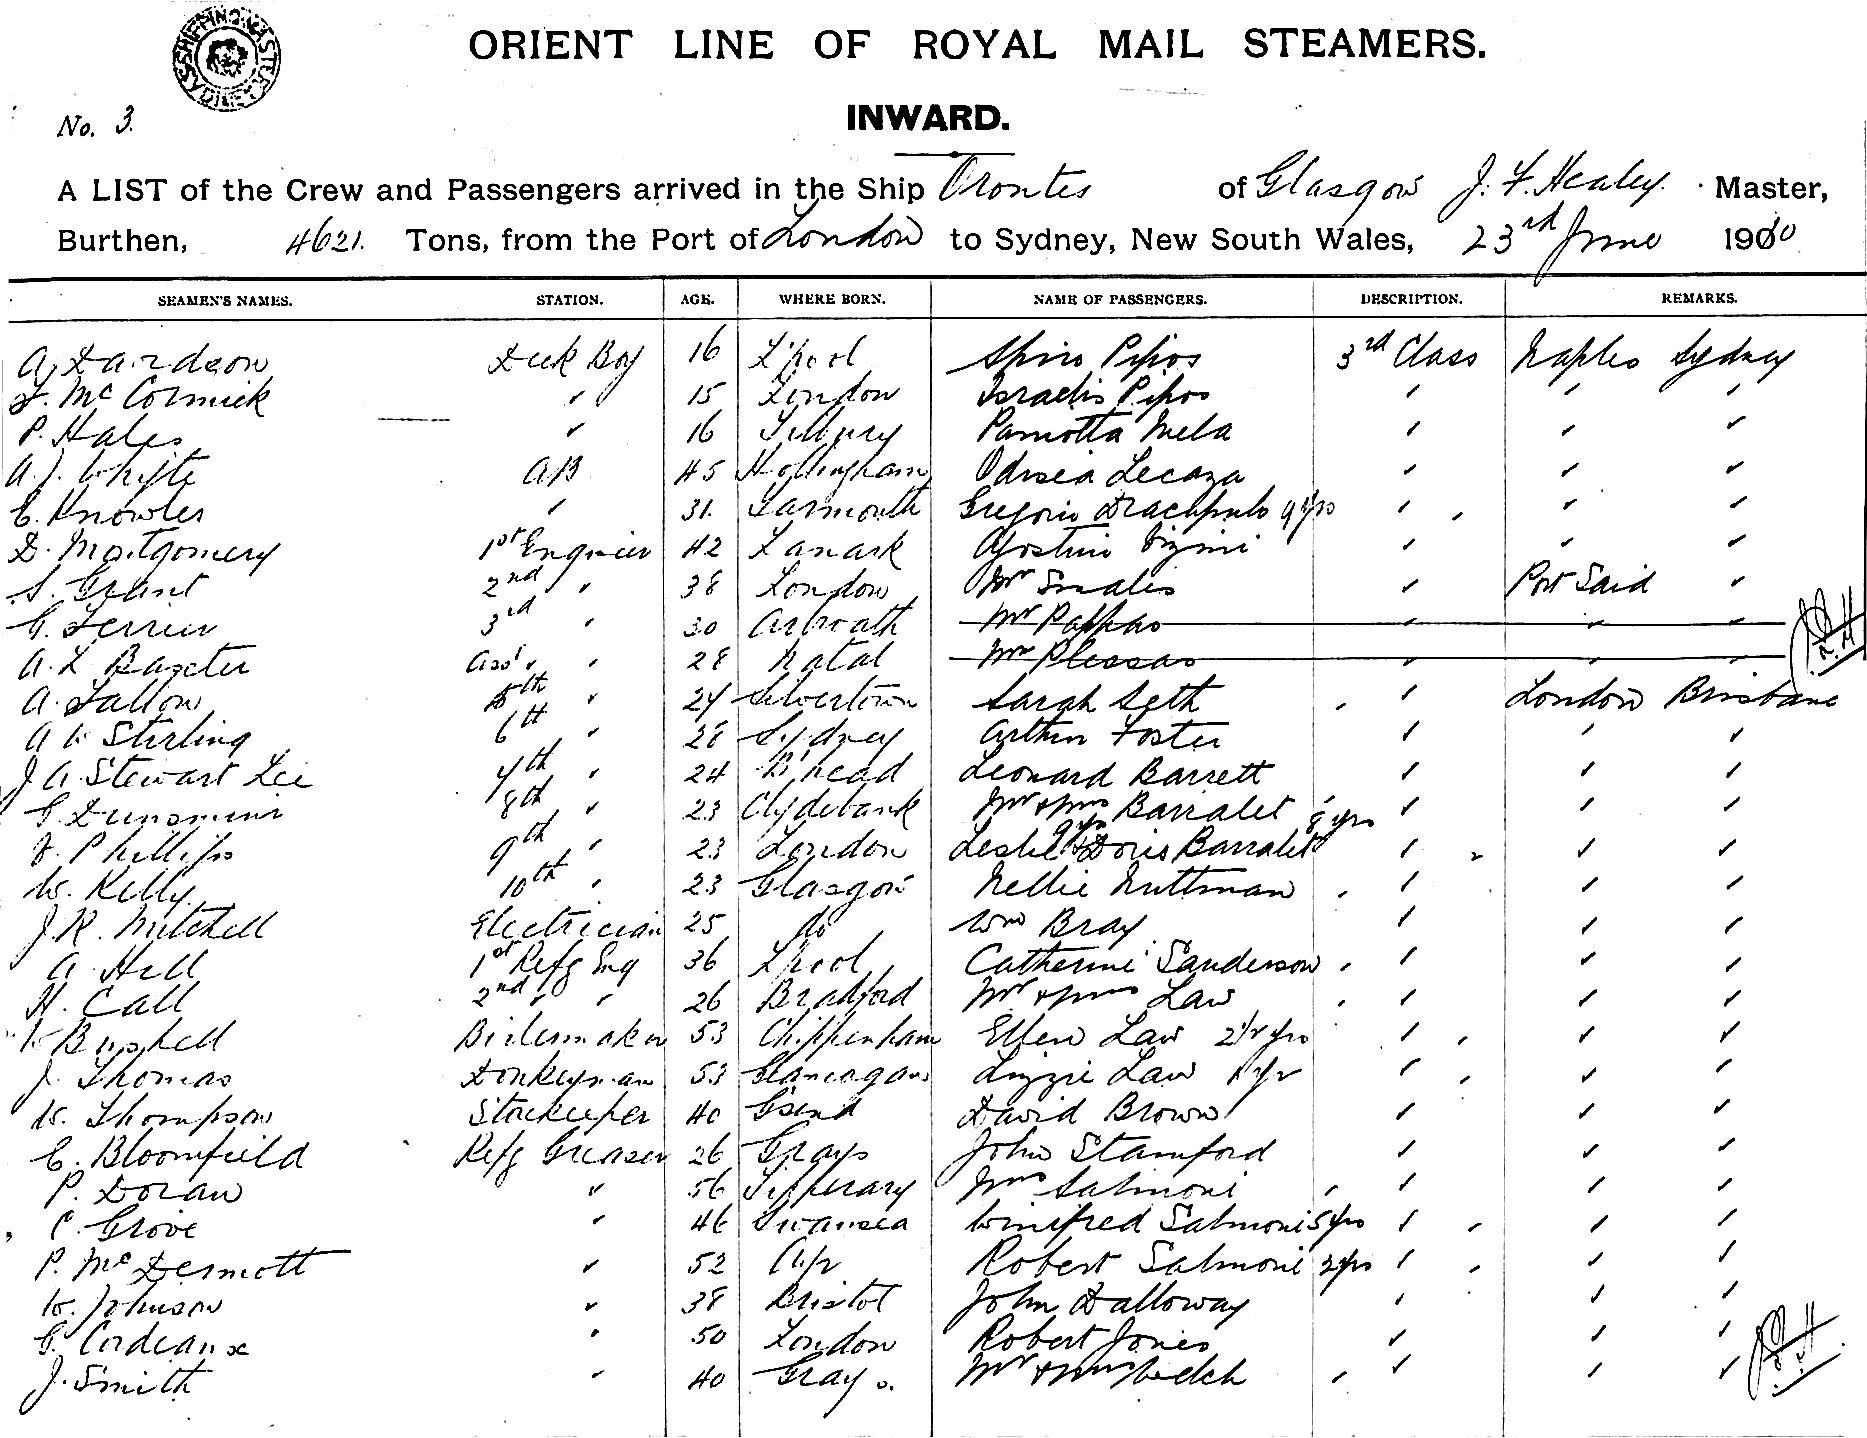 SHIPPING MASTER SYDNEY
ORIENT LINE OF ROYAL MAIL STEAMERS.
No. 3.
INWARD.
A LIST of the Crew and Passengers arrived in the Ship Orontes of Glasgow J. F. Healey. Master,
Burthen, 4621. Tons, from the Port of London to Sydney, New South Wales, 23rd June 1910
SEAMEN'S NAMES. STATION. AGE. WHERE BORN. NAME OF PASSENGERS. DESCRIPTION. REMARKS.
A. Davidson Deck Boy 16 L'pool Spiro Pipos 3rd Class Naples Sydney
McCormick " 15 London Pipos " " "
P. Hales " 16 Tilbury Mela " " "
A. J. Whyte AB 45 Odisea Lecaza " " "
E. Knowles " 31 Yarmouth Gregorio 9 yrs " " "
D. Montgomery 1st Engineer 42 Lanark " " "
S. Grant 2nd " 38 London Mr " Port Said "
G. Ferrier 3rd " 30 Arbroath Mr Pappas " " "
A. L Baxter Asst " 28 Natal Plessas " " "
A. Fallow 5th " 24 Silvertown Sarah Seth " London Brisbane
A W Stirling 6th " 28 Sydney Arthur Foster " " "
J A. Stewart Lee 7th " 24 B'head Leonard Barrett " " "
G. Dunsmuir 8th " 23 Clydebank Mr & Mrs Barralet " " "
F. Phillips 9th " 23 London Leslie 9 yrs & Doris Barralet 8 yrs " " "
W. Kelly 10th " 23 Glasgow Nellie Nuttman " " "
J. R. Mitchell Electrician 25 do Wm Bray " " "
A. Hill 1st Refg Eng 36 L'pool Catherine Sanderson " " "
H. Call 2nd " " 26 Bradford Mr & Mrs Law " " "
Bushell Boilermaker 53 Chippenham Ellen Law 2 1/2 yrs " " "
J. Thomas Donkeyman 53 Lizzie Law 1 yr " " "
W. Thompson Storekeeper 40 G'send David Brown " " "
E. Bloomfield Refg Greaser 26 Grays John Stamford " " "
P. Doran " 56 Tipperary Mrs Salmoni " " "
C. Grove " 46 Swansea Winifred Salmoni 5 yrs " " "
P. McDermott " 52 Ayr Robert Salmoni 3 yrs " " "
W. Johnson " 38 Bristol John Dalloway " " "
G. Cordeaux " 50 London Robert Jones " " "
J. Smith " 40 Grays. Mr & Mrs Welch " " "